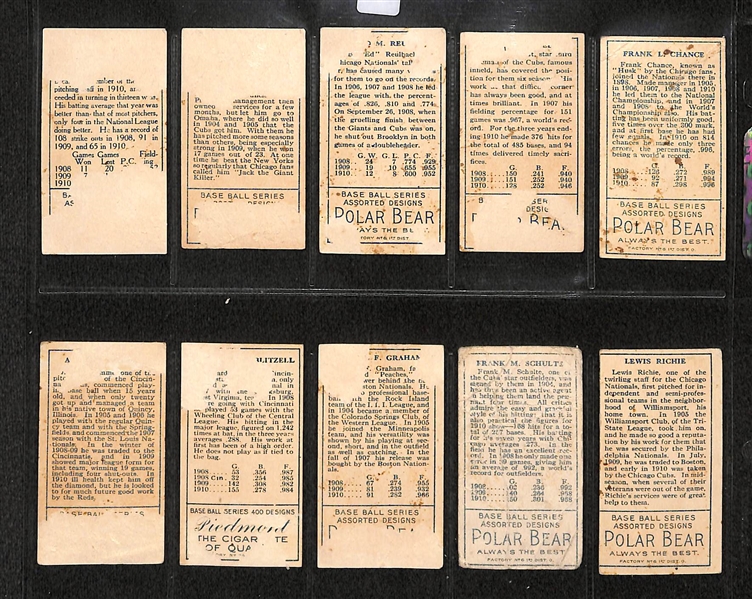 pitching in 1910, and
ceeded in turning in thirteen
His batting average that year was
better than that of most pitchers,
only four in the National League
doing better. He has a record of
108 strike outs in 1908, 91 in
1909, and 65 in 1910.
Games Games Field-
Won Lost P.C. ing.
1908 11 20
1909 7
1910
management then
owned services for a few
months, but let him go to
Omaha, where he did well
in 1904 and 1905, and the
Cubs got him. With them he
has pitched more some seasons
than others, being especially
strong in 1909, when he won
17 games out of 23. At one
time he beat the New Yorks
so regularly that Chicago fans
called him "Jack the Giant
Killer."
BASE BALL SERIES
M. REU
Ed" Reulbach
Chicago Nationals'
has caused many
for them to go off the records.
In 1906, 1907 and 1908 he led
the league with the percent-
ages of .826, .810 and .774.
On September 26, 1908, when
the gruelling finish between
the Giants and Cubs was on,
he shut out Brooklyn in both
games of a doubleheader.
G.W. G.L. P.C. F.
1908 24 7 .774 .929
1909 19 10 .655 .955
1910 12 8 .600 .952
BASE BALL SERIES
ASSORTED DESIGNS
POLAR BEAR
AYS THE BE
TORY Nº 6 1ST DIST
of the Cubs, famous
infield, has covered the posi-
tion for them six seasons. His
work at that diffic.
corner has always been good, and at
times brilliant. In 1907 his
fielding percentage for 151
games was .967, a world's record.
For the three years end-
ing in 1910 he made 376 hits for
the total of 485 bases, and 94
times delivered timely sacri-
fices.
G. B. F.
1908 150 .241 .940
1909 151 .252 .940
1910 128 .252 .946
SER
DESIG
FRANK L. CHANCE
Frank Chance, known as
"Husk" by the Chicago fans,
joined the Nationals there in
1898. Made manager in 1905,
in 1906, 1907, 1908 and 1910
he led them to the National
Championship, and in 1907
and 1908 to the World's
Championship. His bat-
ting has been uniformly good,
five times over the .300 mark,
and at first base he has had
few equals. In 1910 on 814
chances he made only three
errors, the percentage, .996,
being a world's record.
G. B. F.
1908 126 .272 .989
1909 92 .271 .994
1910 87 .298 .996
BASE BALL SERIES
ASSORTED DESIGNS
POLAR BEAR
ALWAYS THE BEST.
FACTORY Nº 6 1ST DIST. O.
A
one of the
of the Cincin-
commenced play-
base ball when 15 years
old, and when only twenty
got up and managed a team
in his native town of Quincy,
Illinois. In 1905 and 1906 he
played with the regular Quin-
cy team and with the Spring-
fields, and commenced the 1907
season with the St. Louis Na-
tionals. In the winter of
1908-09 he was traded to the
Cincinnatis, and in 1909
showed major league form for
that team, winning 19 games,
including four shut-outs. In
1910 ill health kept him off
the diamond, but he is looked
to for much future good work
by the Reds.
WITZELL
Cincin-
only
West Virginia, ten
going with Cincinnati
played 53 games with the
Wheeling club of the Central
League. His hitting in the
major league, figured on 1,242
times at bat, in the three years
averages .288. His work at
first has been of a high order.
He does not play as if tied to
the bag.
G. B. F.
1908 53 .336 .987
1908 Cin. 32 .254 .985
1909 151 .310 .982
1910 155 .278 .984
BASE BALL SERIES 400 DESIGNS
Piedmont
THE CIGAR TE
OF QUA
F. GRAHAM
Graham, far
"Peaches,"
ower behind the
Boston Nationals. H
professional base-
ball with the Rock Island
team of the I. I. I. League, and
in 1904 became a member of
the Colorado Springs Club, of
the Western League. In 1905
he joined the Minneapolis
Team, and his versatility was
shown by his playing at sec-
ond, short, and in the outfield
as well as catching. In the
fall of 1907 his release was
bought by the Boston Nation-
G. B. F.
1908 67 .274 .955
1909 81 .239 .932
1910 91 .282 .966
BASE BALL SERIES
ASSORTED DESIGNS
FRANK M. SCHULTZ
Frank M. Schulte, one of
the Cubs' star outfielders, was
signed by them in 1904, and
has thus been an active agent
in helping them land the pen-
nant four times. All critics
admire the easy and graceful
style of his hitting; that it is
also practical the figures for
1910 show—168 hits for a to-
tal of 257 bases. His batting
for seven years with Chi-
cago averages .273. In the
field he has an excellent rec-
ord. In 1908 he made only one
error in 89 games, giving him
an average of .992, a world's
record for outfielders.
G. B. F.
BASE BALL SERIES
ASSORTED DESIGNS
POLAR BEAR
ALWAYS THE BEST.
FACTORY Nº 6 1ST DIST. O.
LEWIS RICHIE
Lewis Richie, one of the
twirling staff for the Chicago
Nationals, first pitched for in-
dependent and semi-profes-
sional teams in the neighbor-
hood of Williamsport, his
home town. In 1905 the
Williamsport Club, of the Tri-
State League, took him on,
and he made so good a reputa-
tion by his work for them that
he was secured by the Phila-
delphia Nationals. In July,
1909, he was traded to Boston,
and early in 1910 was taken
by the Chicago Cubs. In mid-
season, when several of their
veterans were out of the game,
Richie's services were of great
help to them.
BASE BALL SERIES
ASSORTED DESIGNS
POLAR BEAR
ALWAYS THE BEST.
FACTORY Nº 6 1ST DIST. O.